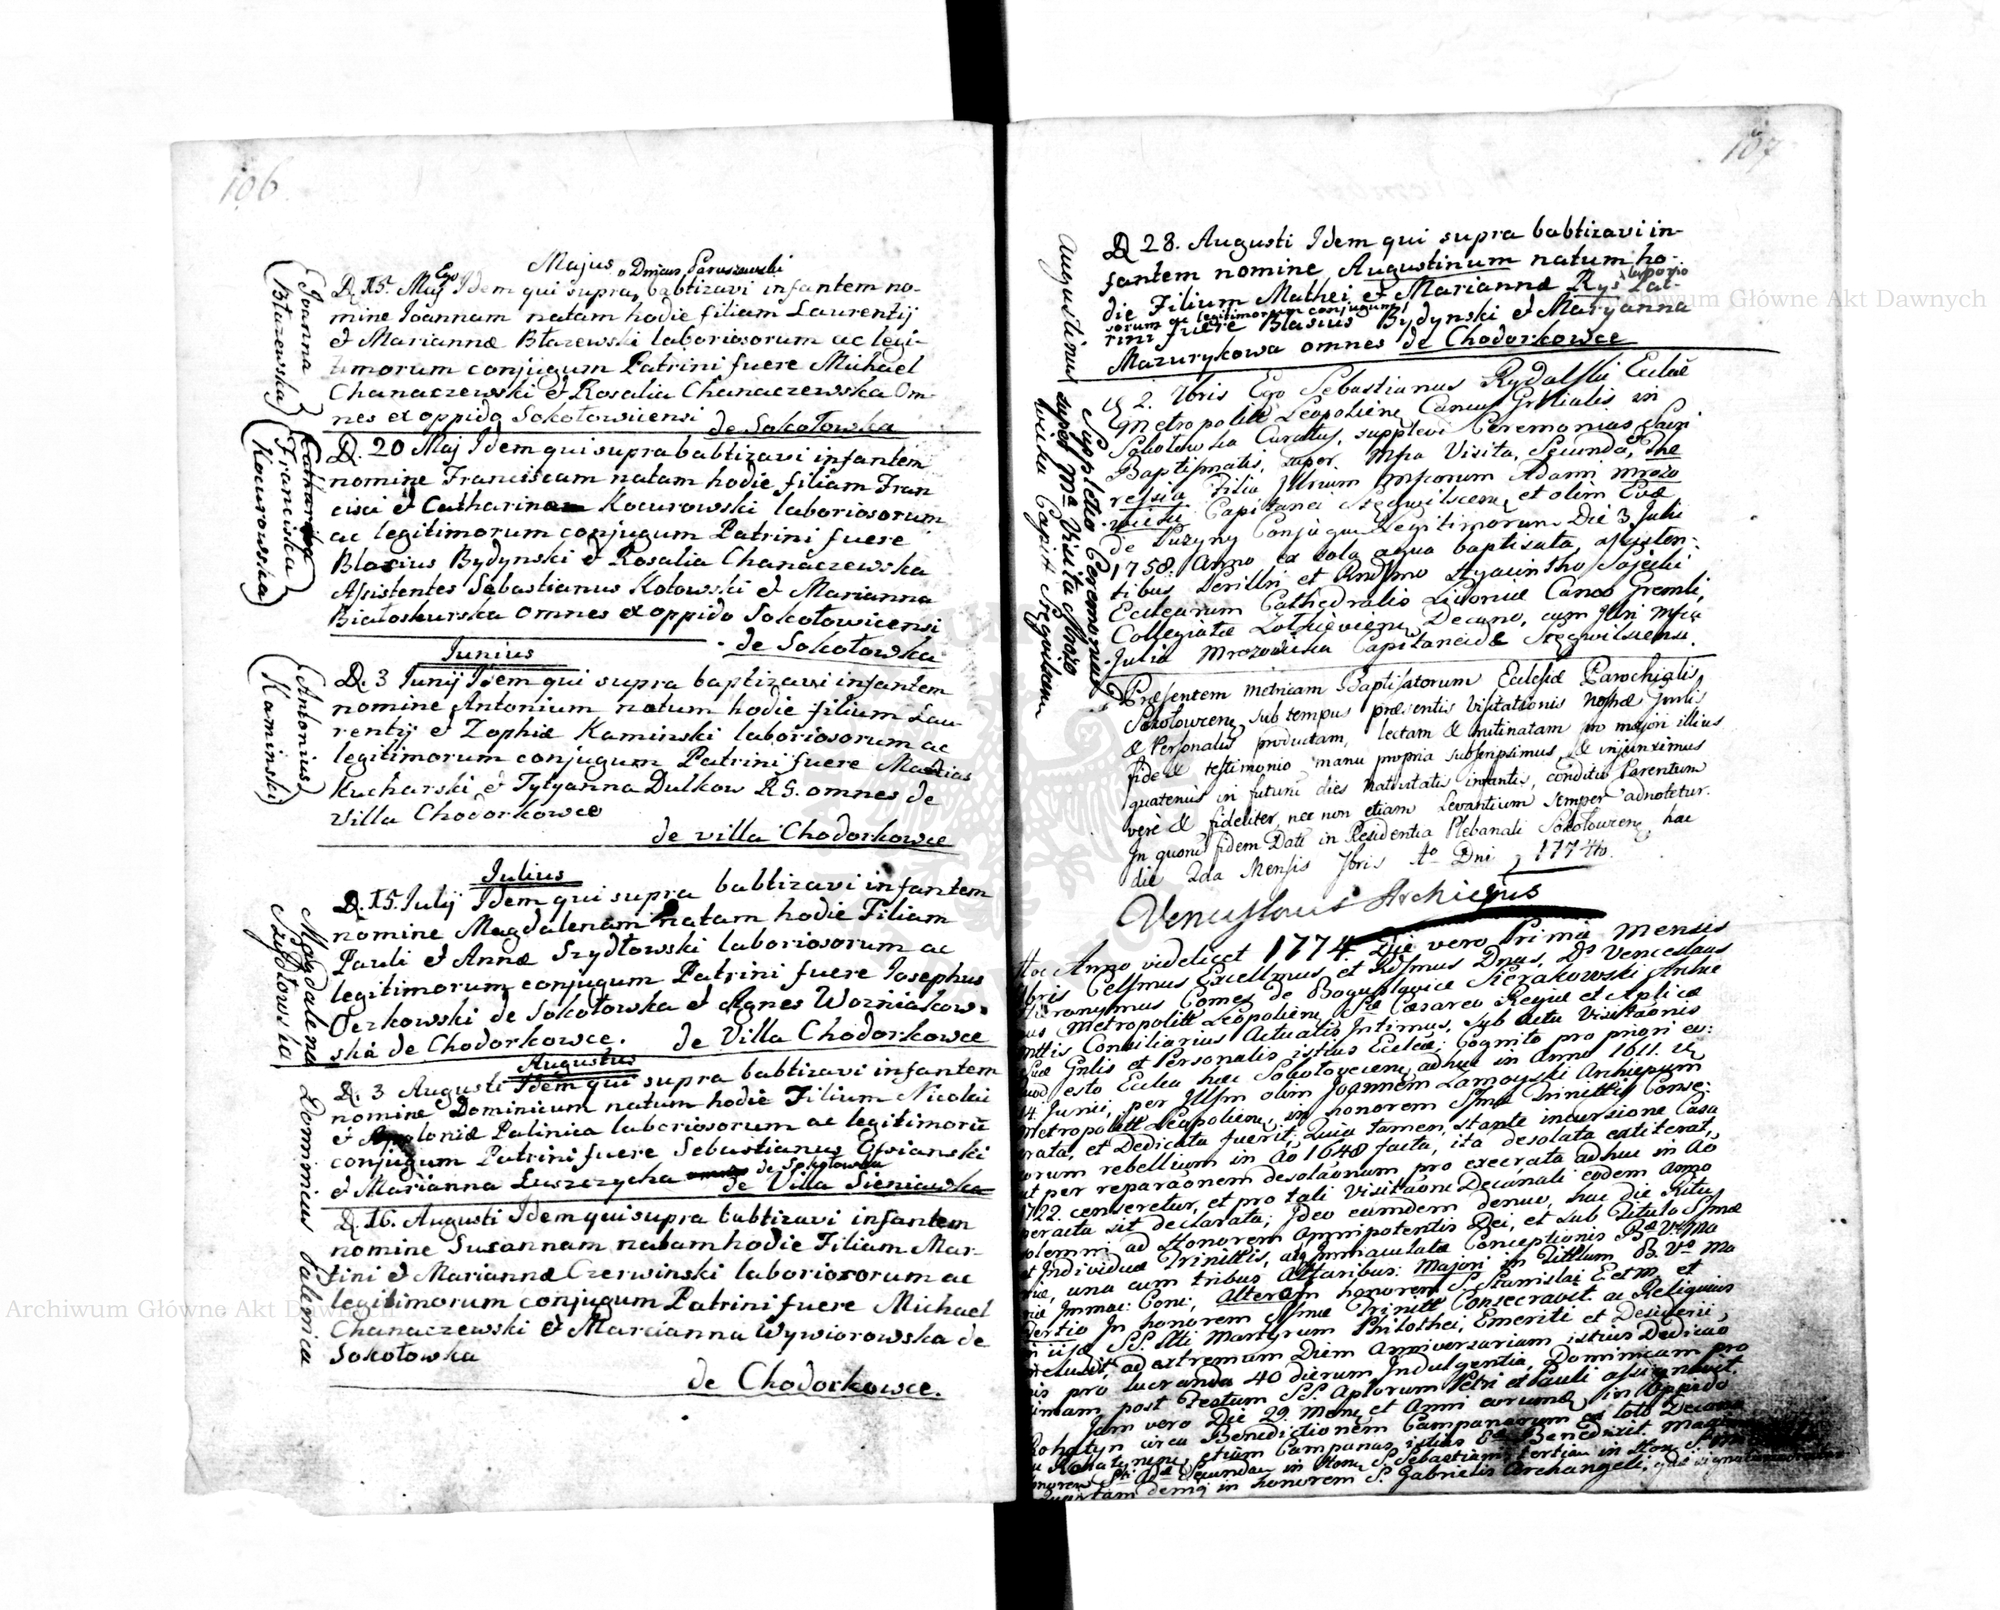 106
Majus
D. 15. Maij Ego Idem qui supra, babtizavi infantem no-
mine Joannam natam hodie filiam Laurentij
et Mariannæ Błazewski laboriosorum ac legi-
timorum conjugum Patrini fuere Michael
Chanaczewski et Rosalia Chanaczewska Om-
nes ex oppido Sokołowicensi
de Sokołowka
Joanna
Błazewska
D. 20 Maij Idem qui supra babtizavi infantem
nomine Franciscam natam hodie filiam Fran
cisci et Catharinæ Kocurowski laboriosorum
ac legitimorum conjugum Patrini fuere
Blasius Bydynski et Rosalia Chanaczewska
Assistentes Sebastianus Kotowski et Marianna
Białoskurska omnes ex oppido Sokołowicensi
de Sokołowka
Catharina
Francisca
Kocurowska
Junius
D. 3 Junij Idem qui supra baptizavi infantem
nomine Antonium natum hodie filium Lau-
rentij et Zophiæ Kaminski laboriosorum ac
legitimorum conjugum Patrini fuere Mathias
Kucharski et Tytyanna Dulkow RG. omnes de
Villa Chodorkowce
de villa Chodorkowce
Antonius
Kaminski
Julius
D. 15. Julij Idem qui supra babtizavi infantem
nomine Magdalenam natam hodie Filiam
Pauli et Annæ Szydłowski laboriosorum ac
legitimorum conjugum Patrini fuere Josephus
Derkowski de Sokołowka et Agnes Wozniakow-
ska de Chodorkowce. de Villa Chodorkowce
Magdalena
Szydłowska
Augustus
D. 3 Augusti Idem qui supra babtizavi infantem
nomine Dominicum natum hodie Filium Nicolai
et Apoloniæ Palinica laboriosorum ac legitimorū
conjugum Patrini fuere Sebastianus Ossianski
et Marianna Łuszczycka de Sokołowka
de Villa Sieniawka
Dominicus Palenica
D. 16. Augusti Idem qui supra babtizavi infantem
nomine Susannam natam hodie Filiam Mar-
tini et Mariannæ Czerwinski laboriosorum ac
legitimorum conjugum Patrini fuere Michael
Chanaczewski et Marcianna Wywiorowska de
Sokołowka
de Chodorkowce.
107
D. 28. Augusti Idem qui supra babtizavi in-
fantem nomine Augustinum natum ho-
die Filium Mathei et Mariannæ Rys laborio
sorum ac legitimorum conjugum Pat-
rini fuere Blasius Bydynski et Maryanna
Mazurykowa omnes de Chodorkowce
Augustinus
D 2. 7bris Ego Sebastianus Rydalski Eccłæ
Metropolit Leopolien Canus Grtialis in
Sokołowka Curatus, supplevi Ceremonias Sacri
Baptismatis, super Mfca Visita, Secunda, The
resia Filia Illrium Mficorum Adami Mrozo
wicki Capitanei Stegwilscen, et olim Evæ
de Puzyny Conjugum Legitimorum Die 3 Julii
1758. Anno ex sola aqua baptisata, assisten-
tibus Perillri et Rndssmo Hyacintho Sajecki
Ecclearum Cathedralis Livoniæ Cano Gremli,
Collegiatæ Zołkievien Decano, cum Illri Mfca
Julia Mrozowicka Capitaneide Stegwilscensi.
Supletio Ceremoniarū
super Mfca Visita Mrozo
wicka Capit: Stegvilscen
Præsentem metricam Baptisatorum Ecclesiæ Parochialis
Sokołowcen, sub tempus præsentis Visitationis nostræ Gnrlis
& Personalis productam, lectam & rutinatam pro majori illius
fide & testimonio manu propria subscripsimus, & injunximus
quatenus in futurū dies nativitatis infantis, conditio Parentum
verè & fideliter, nec non etiam Levantium semper adnotetur.
In quorū fidem Datt in Residentia Plebanali Sokołowcen, hac
die 2da Mensis 7bris Ao Dni 1774to.
Venceslaus Archieppus
Hoc Anno videlicet 1774 Die vero Prima Mensis
7bris Celsmus Excellmus et Rdsmus Dnus, Ds Venceslaus
Hieronymus Comes de Bogusławice Sierakowski Archie
pus Metropolitt Leopolien, Sæ Cæsareo Regiæ et Aplicæ
Mttis Consiliarius Actualis Intimus, sub actu Visitaonis
suæ Gnlis et Personalis istius Ecclæ; Cognito pro priori ex:
quod esto Ecclea hæc Sokołovecen, adhuc in Anno 1611. D
14 Junii, per Illsm olim Joannem Zamoyski Archieppum
Metropolitt Leopolien, in honorem Ssmæ Trinittis Conse-
crata, et Dedicata fuerit, Quia tamen, stante incursione Cosa
corum rebellium in Ao 1648 facta, ita desolata extiterat,
ut per reparaonem desolaonum pro execrata adhuc in Ao
1722. censeretur, et pro tali Visitaone Decanali eodem anno
peracta sit declarata; Ideo eamdem denuo, hac die Ritu
solemni ad Honorem Omnipotentis Dei, et sub Titulo Ssmæ
et Individuæ Trinittis, atq Immaculatæ Conceptionis Bæ V: Ma
riæ, una cum tribus Altaribus: Majori in Titlum B. Vs Ma
riæ Immac: Conc;, Altero in honorem S. Stanislai E et M, et
Tertio in honorem Ssmæ Trinitt Consecravit. ac Reliquias
in iisd SS. Mti Martyrum Philothei, Emeriti et Desiderii,
inclusit, ad extremum Diem Anniversariam istius Dedicao
nis pro lucranda 40 dierum Indulgentia, Dominicam pro
ximam post Festum SS. Aplorum Petri et Pauli assignavit.
Jam vero Die 29. Mens, et Anni eorumdē, in Oppido
Rohatyn circa Benedictionem Campanarum ex toto Decana
tu Rohatynen, etiam Campanas istius Eccæ Benedixit.
Secundam in Honor S. Sebastiani, tertiam in Hon
Quartam demq in honorem S. Gabrielis Archangeli,
Archiwum Główne Akt Dawnych
Archiwum Główne Akt Dawnych